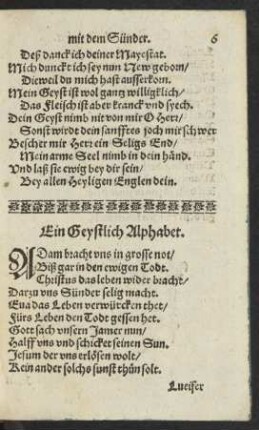 mit dem Sünder. 6
Deß danck ich deiner Mayestat.
Mich dunckt ich sey nun New geborn/
Dieweil du mich hast ausserkorn.
Mein Geyst ist wol gantz willigklich/
Das Fleisch ist aber kranck vnd syech.
Dein Geyst nimb nit von mir O Herr/
Sonst wirdt dein sanfftes joch mir schwer
Bescher mir Herr ein Seligs End/
Mein arme Seel nimb in dein händ.
Vnd laß sie ewig bey dir sein/
Bey allen Heyligen Englen dein.
Ein Geystlich Alphabet.
ADam bracht vns in grosse not/
Biß gar in den ewigen Todt.
Christus das leben wider bracht/
Darzu vns Sünder selig macht.
Eua das Leben verwürcken thet/
Fürs Leben den Todt gessen het.
Gott sach vnsern Jamer nun/
Halff vns vnd schicket seinen Sun.
Jesum der vns erlösen wolt/
Kein ander solchs sunst thün solt.
Lucifer